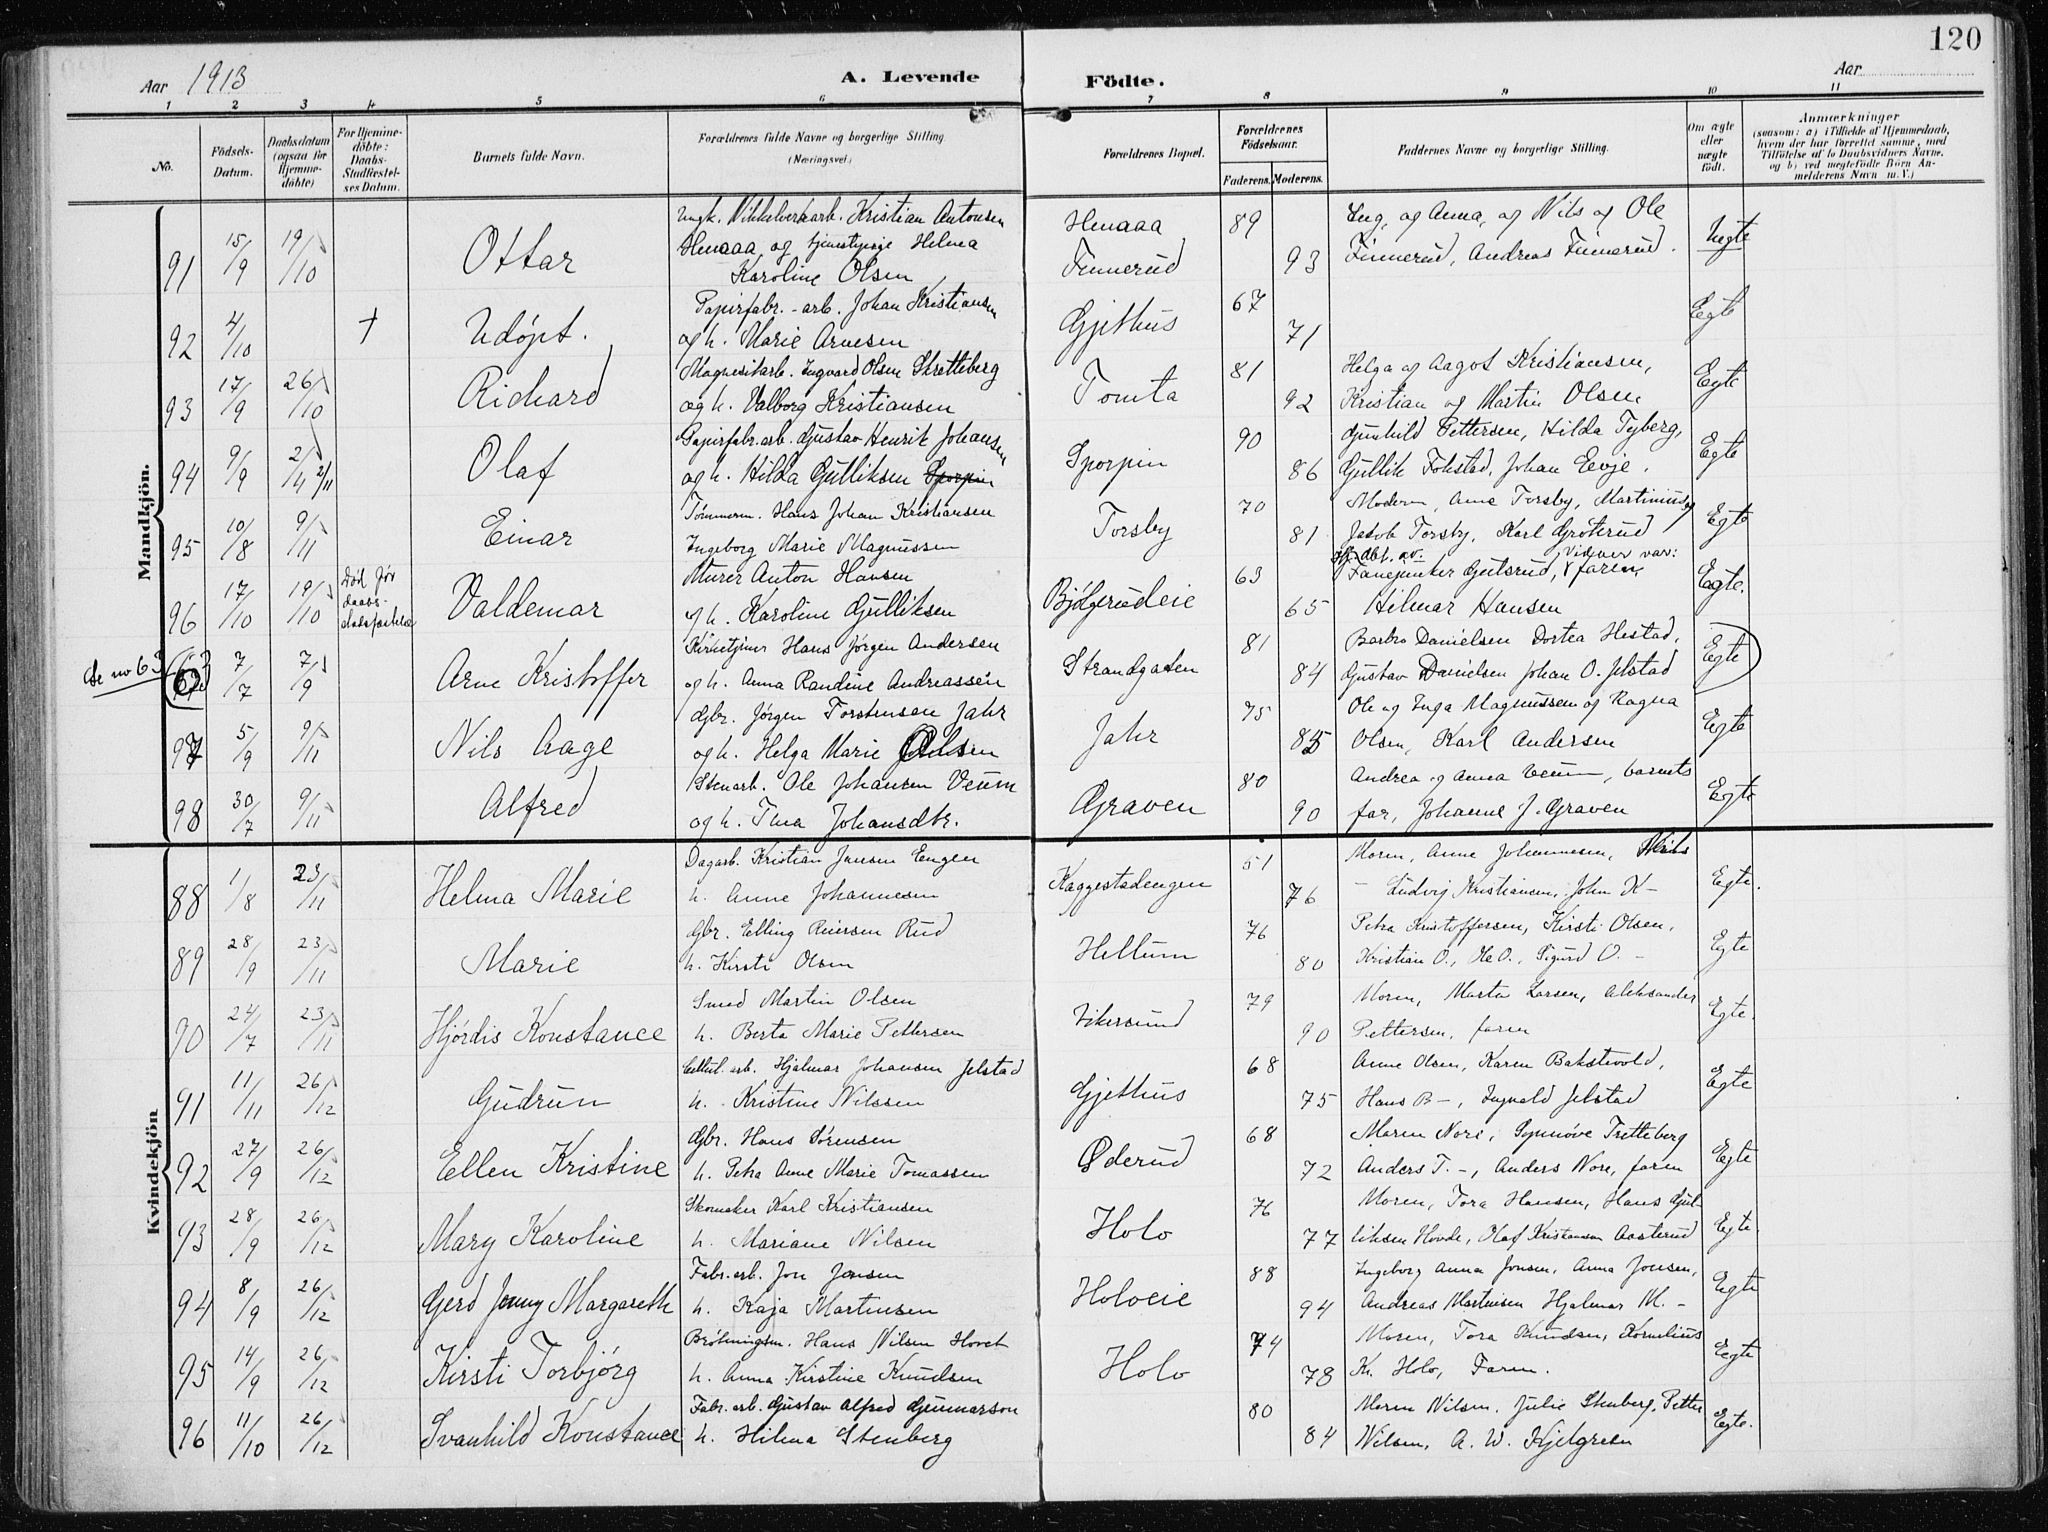 120
Aar 1913
A. Levende
Födte.
Aar
1 2 3 4 5 6 7 8 9 10 11
No.
Födsels-
Datum.
Daabsdatum
(ogsaa for
Hjemme-
döbte)
For Hjemme-
döbte:
Daabs-
Stadfæstel-
ses Datum.
Barnets fulde Navn.
Forældrenes fulde Navne og borgerlige Stilling.
(Næringsvei.)
Forældrenes Bopæl.
Forældrenes
Födselsaar.
Faderens. Moderens.
Faddernes Navne og borgerlige Stilling.
Om ægte
eller
uægte
født.
Anmærkninger
(saasom: a) i Tilfælde af Hjemmedaab,
hvem der har forrettet samme, med
Tilföielse af to Daabsvidners Navne,
og b) ved uægtefödte Börn An-
melderens Navn m. V.)
Mandkjön.
91 15/9 19/10 Ottar
Ungk. Nikkelverkarb. Kristian Antonsen
Henaaa og tjenestepige Helma
Karoline Olsen
Henaaa
Finnerud
89 93
Ing. og Anna, og Nils og Ole
Finnerud, Andreas Finnerud.
Uegte
92 4/10 † Udøpt.
Papirfabr.-arb. Johan Kristiansen
og h. Marie Arnesen
Gjethus 67 71 Egte
93 17/9 26/10 Richard
Magnesitarb. Ingvard Olsen Skretteberg
og h. Valborg Kristiansen
Tomta 81 92
Helga og Aagot Kristiansen,
Kristian og Martin Olsen
Egte
94 9/9 2/11 2/11 Olaf
Papirfabr.arb. Gustav Henrik Johansen
og h. Hilda Gulliksen Sporpin
Sporpin 90 86
Gunhild Pettersen, Hilda Tyberg,
Gullik Fokstad, Johan Eevje.
Egte
95 10/8 9/11 Einar
Tømmerm. Hans Johan Kristiansen
Ingeborg Marie Magnussen
Torsby 70 81
Modern, Anne Torsby, Martinius og
Jakob Torsby, Karl Grøterud
Egte
96 17/10 19/10
Død før
daabs-
stadfæstelse
Valdemar
Murer Anton Hansen
og h. Karoline Gulliksen
Bjølgerudeie 63 65
hj. dbt. av. Vidner var:
Fanejunker Gutsrud, faren,
Hilmar Hansen
Egte.
Se no 63
63 7/7 7/9 Arne Kristoffer
Kirketjener Hans Jørgen Andersen
og h. Anna Randine Andreassen
Strandgaten 81 84
Barbro Danielsen Dortea Hestad,
Gustav Danielsen Johan O. Jelstad
Egte
97 5/9 9/11 Nils Aage
Gbr. Jørgen Torstensen Jahr
og h. Helga Marie Olsen
Jahr 75 85
Ole og Inga Magnussen og Ragna
Olsen, Karl Andersen
Egte
98 30/7 9/11 Alfred
Stenarb. Ole Johansen Veum
og h. Tina Johansdtr.
Graven 80 90
Andrea og Anna Veum, barnets
far, Johanne J. Graven
Egte
Kvindekjön
88 1/8 23/11 Helma Marie
Dagarb. Kristian Jensen Engen
h. Anne Johannesen
Kaggestadengen 51 76
Moren, Anne Johannesen, Nils
— Ludvig Kristiansen, John K—
Egte.
89 28/9 23/11 Marie
Gbr. Elling Reiersen Rud
h. Kirsti Olsen
Hellum 76 80
Petra Kristoffersen, Kirsti Olsen,
Kristian O., Ole O., Sigurd O. —
Egte
90 24/7 23/11 Hjørdis Konstance
Smed Martin Olsen
h. Berta Marie Pettersen
Vikersund 79 90
Moren, Marta Larsen, Aleksander
Pettersen, faren
Egte.
91 11/11 26/12 Gudrun
Cellul.arb. Hjalmar Johansen Jelstad
h. Kristine Nilssen
Gjethus 68 75
Anne Olsen, Karen Bakstvold,
Hans B—, Ingvald Jelstad
Egte
92 27/9 26/12 Ellen Kristine
Gbr. Hans Sørensen
h. Petra Anne Marie Tomassen
Øderud 68 72
Maren Nore, Synnøve Tretteberg
Anders T. —, Anders Nore, faren
Egte
93 28/9 26/12 Mary Karoline
Skomaker Karl Kristiansen
h. Mariane Nilsen
Holo 76 77
Moren, Tora Hansen, Hans Gul-
liksen Hovde, Olaf Kristiansen Aasterud
Egte.
94 8/9 26/12 Gerd Jenny Margareth
Fabr.arb. Jon Jensen
h. Kaja Martinsen
Holoeie 88 94
Ingeborg Anna Jonsen, Anna Jonsen,
Andreas Martinsen Hjalmar M. —
Egte
95 14/9 26/12 Kirsti Torbjørg
Brøtningsm. Hans Nilsen Hovet
h. Anna Kirstine Knudsen
Holo 74 78
Moren, Tora Knudsen, Kornelius
Kr. Holo, Faren.
Egte
96 11/10 26/12 Svanhild Konstance
Fabr.arb. Gustav Alfred Gunnarson
h. Hilma Stenberg
80 84
Maren Nilsen, Julie Stenberg, Petter
Nilsen, A. W. Kjelgren
Egte.